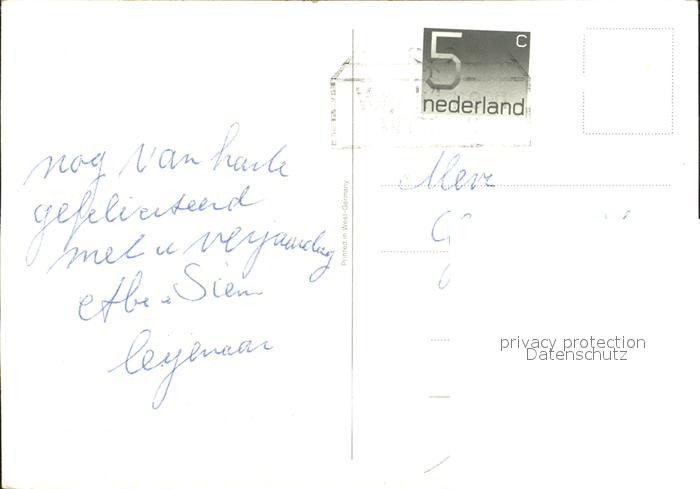 5 c
nederland
nog van harte
gefeliciteerd
met u verjaardag
Siem
Mevr
Printed in West-Germany
privacy protection
Datenschutz